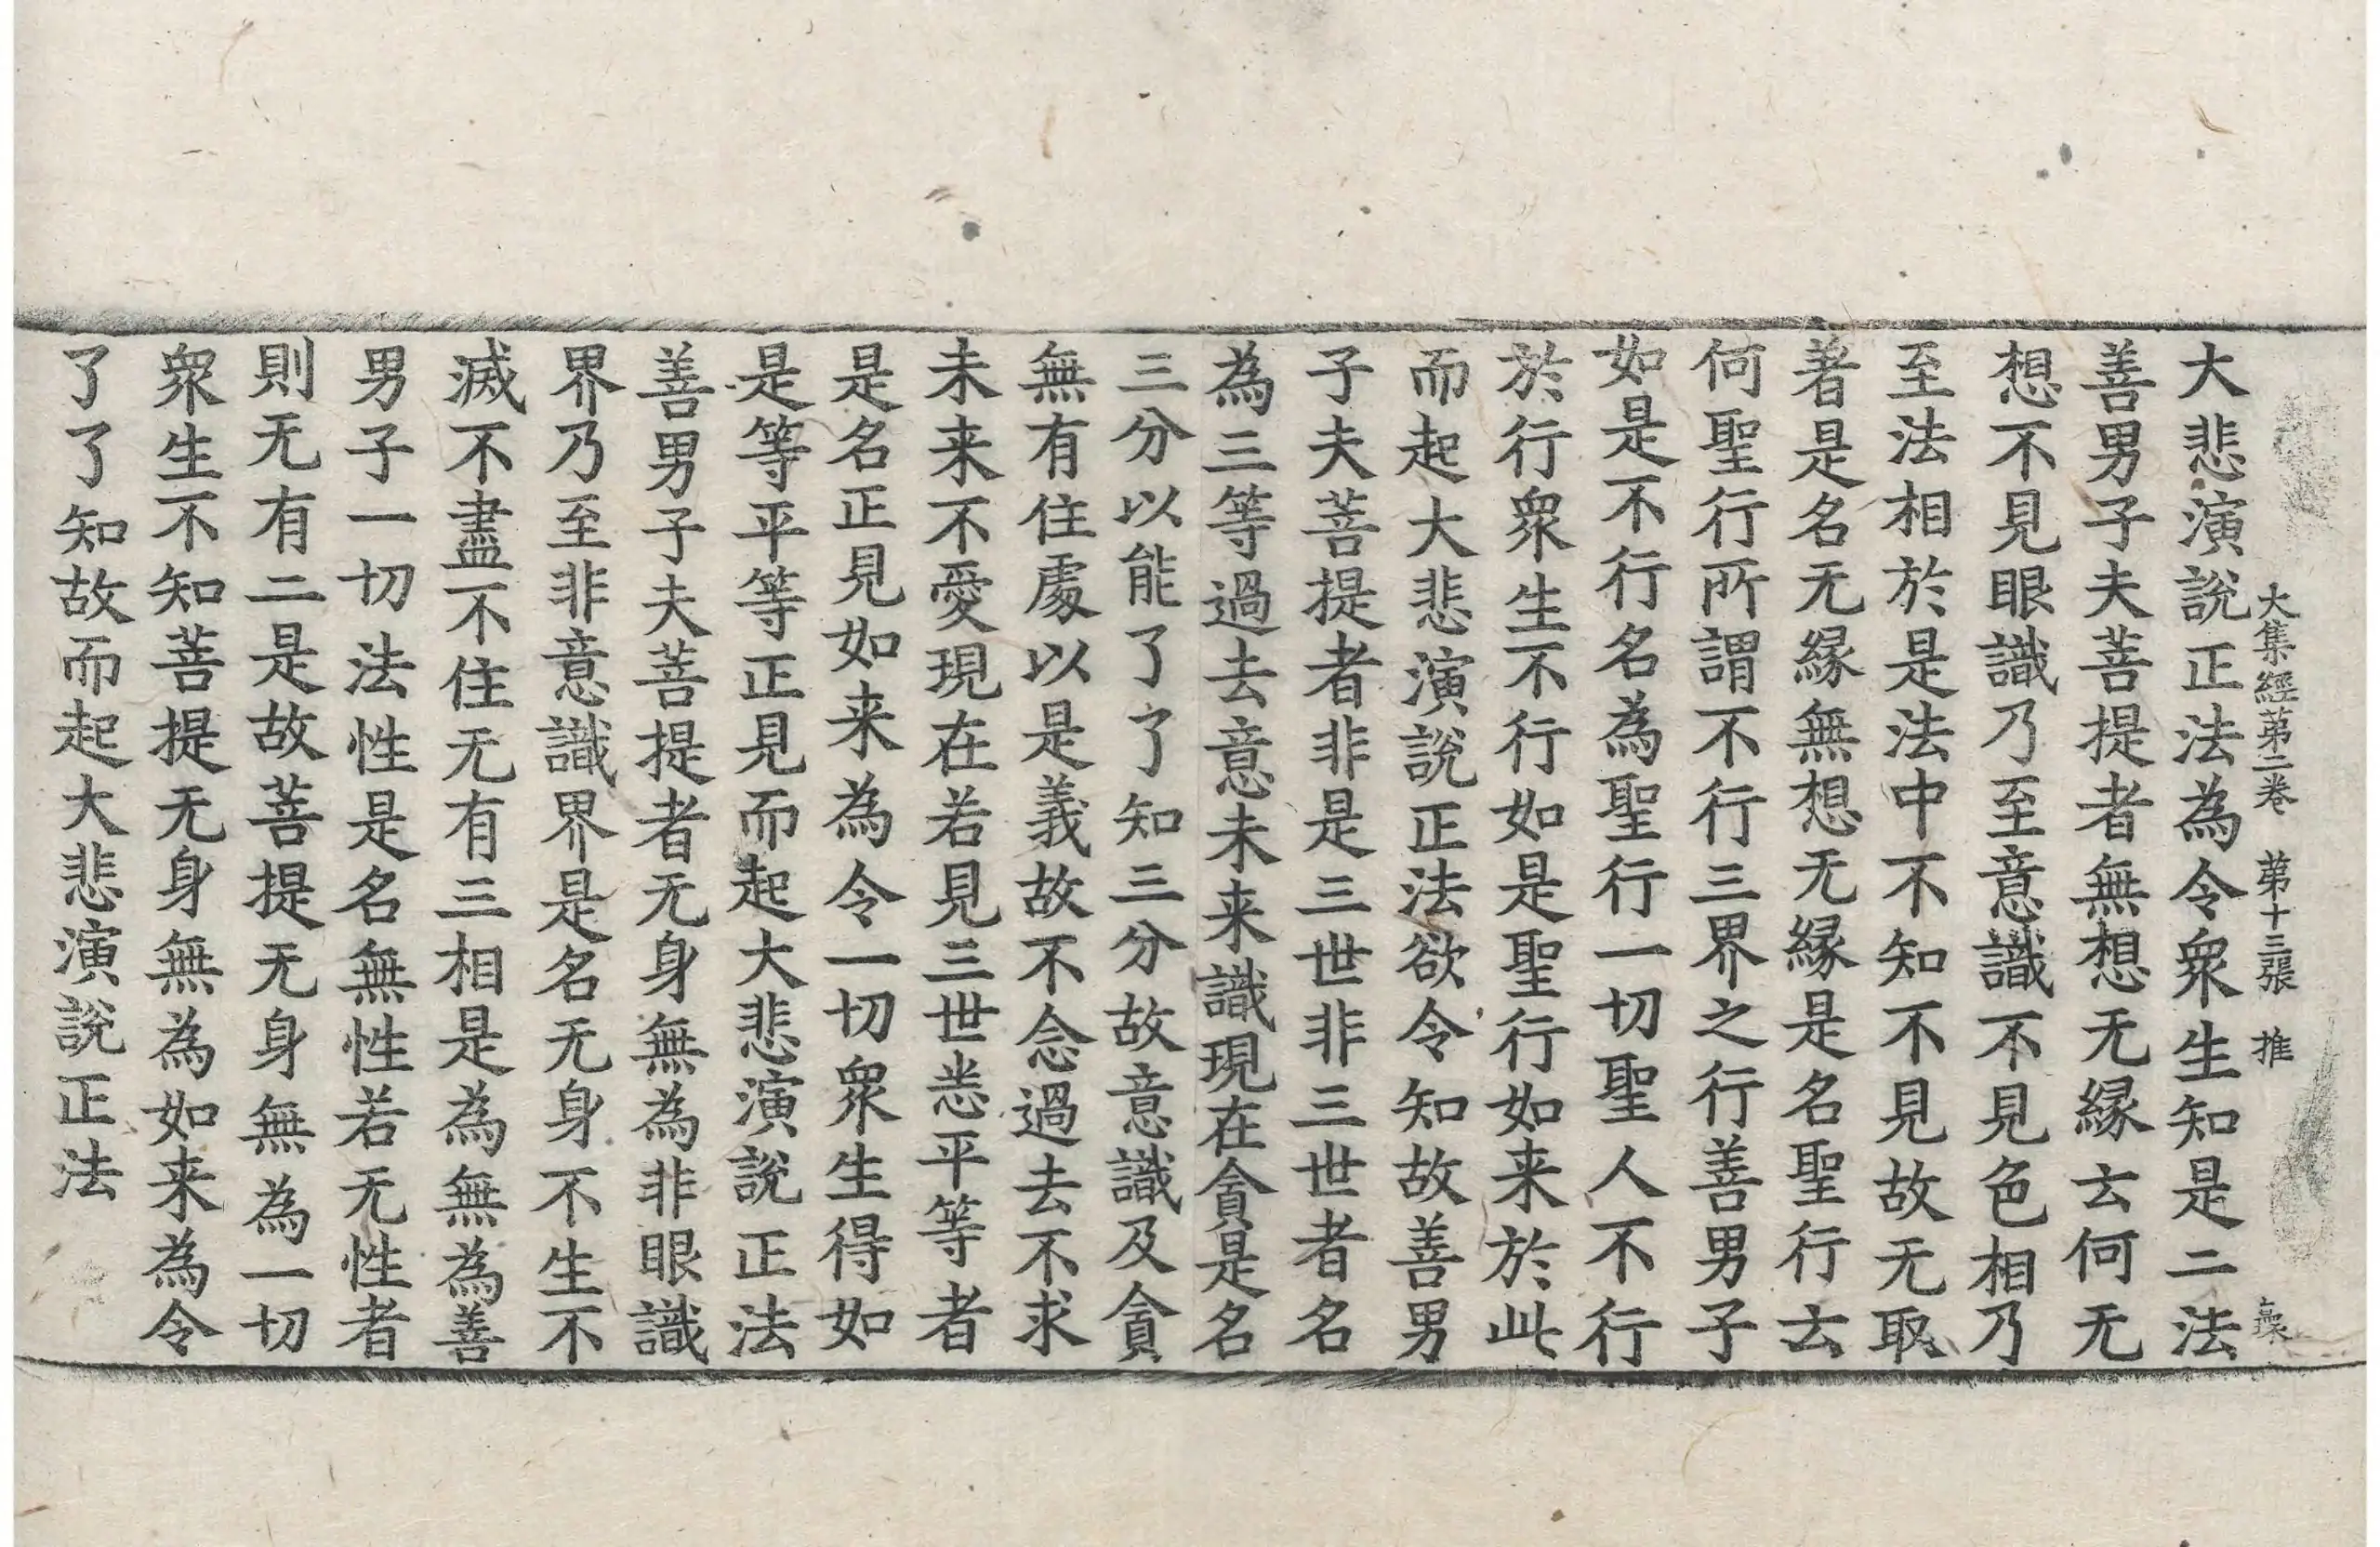 大集經第二卷 第十三張 推
大悲演說正法為令衆生知是二法
善男子夫菩提者無想无緣云何无
想不見眼識乃至意識不見色相乃
至法相於是法中不知不見故无取
著是名无緣無想无緣是名聖行云
何聖行所謂不行三界之行善男子
如是不行名為聖行一切聖人不行
於行衆生不行如是聖行如来於此
而起大悲演說正法欲令知故善男
子夫菩提者非是三世非三世者名
為三等過去意未来識現在貪是名
三分以能了了知三分故意識及貪
無有住處以是義故不念過去不求
未来不愛現在若見三世悉平等者
是名正見如来為令一切衆生得如
是等平等正見而起大悲演說正法
善男子夫菩提者无身無為非眼識
界乃至非意識界是名无身不生不
滅不盡不住无有三相是為無為善
男子一切法性是名無性若无性者
則无有二是故菩提无身無為一切
衆生不知菩提无身無為如来為令
了了知故而起大悲演說正法